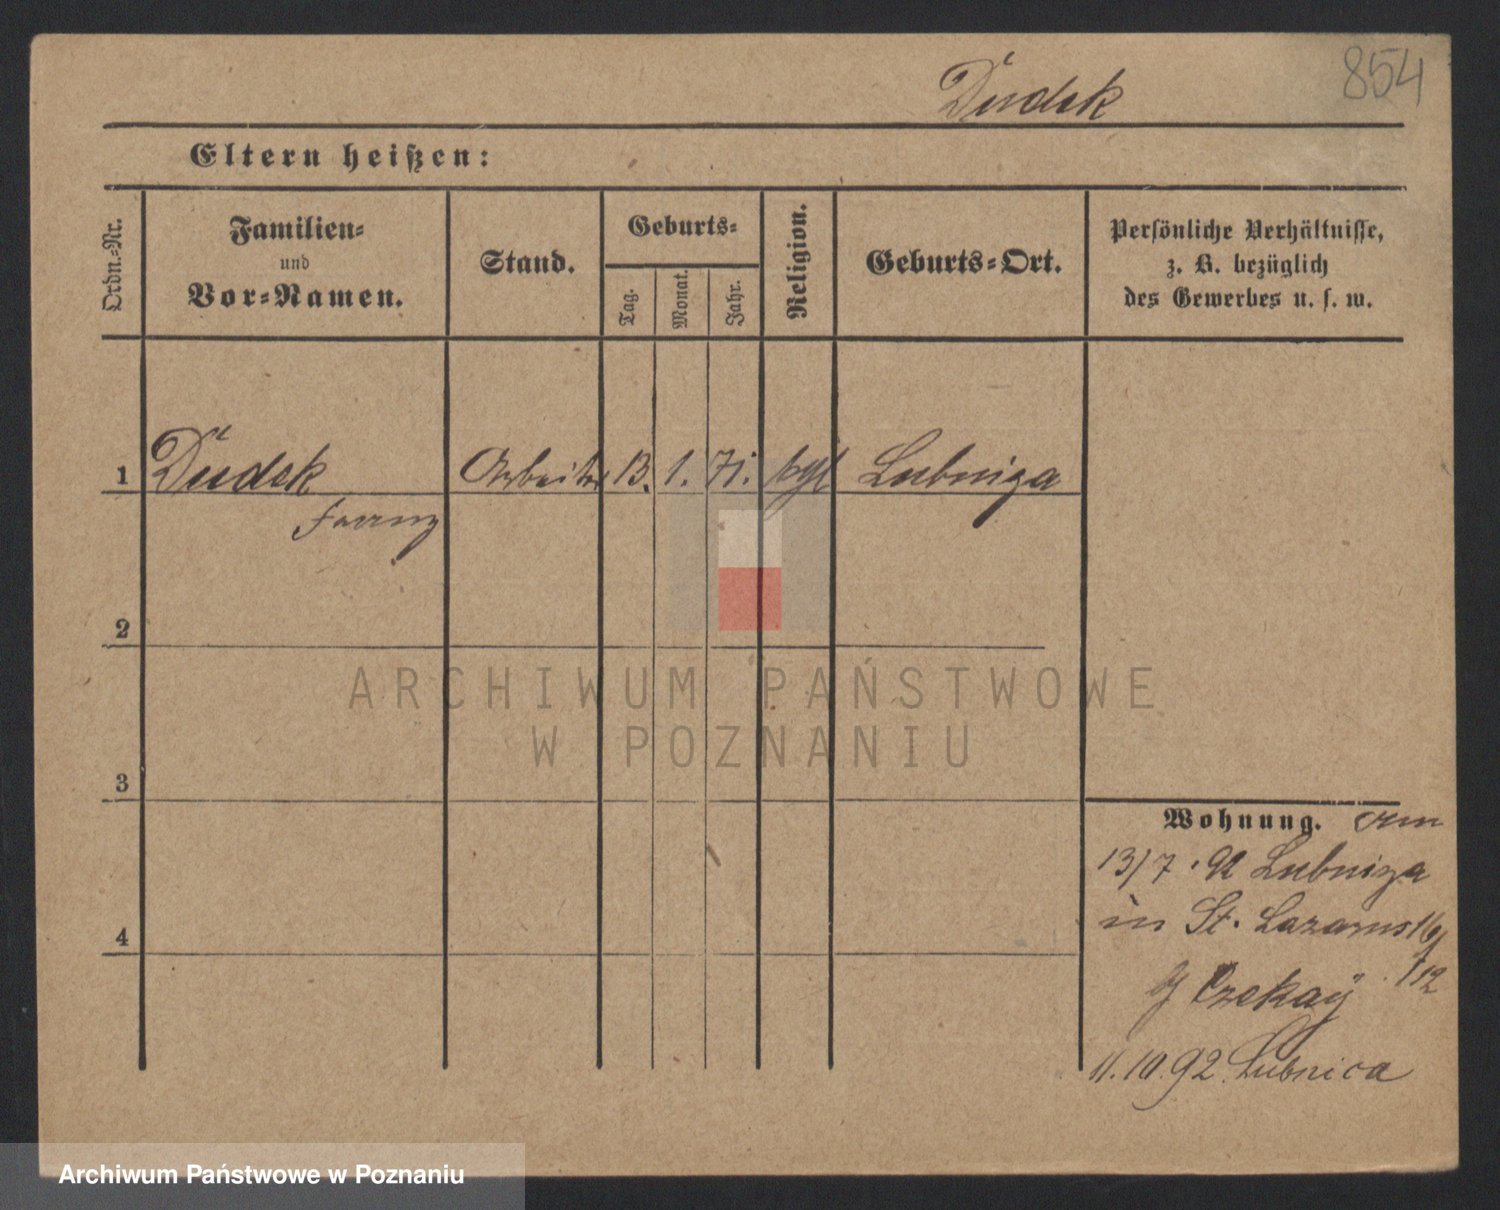 Dudek
854
Eltern heißen:
Ordn.-Nr.
Familien-
und
Vor-Namen.
Stand.
Geburts-
Tag.
Monat.
Jahr.
Religion.
Geburts-Ort.
Persönliche Verhältnisse,
z. B. bezüglich
des Gewerbes u. s. w.
1 Dudek Arbeiter 13. 1. 71. Lubniza
Franz
2
3
4
Wohnung.
13/7. 92 Lubniza
in St. Lazarus
11.10.92 Lubnica
ARCHIWUM PAŃSTWOWE
W POZNANIU
Archiwum Państwowe w Poznaniu